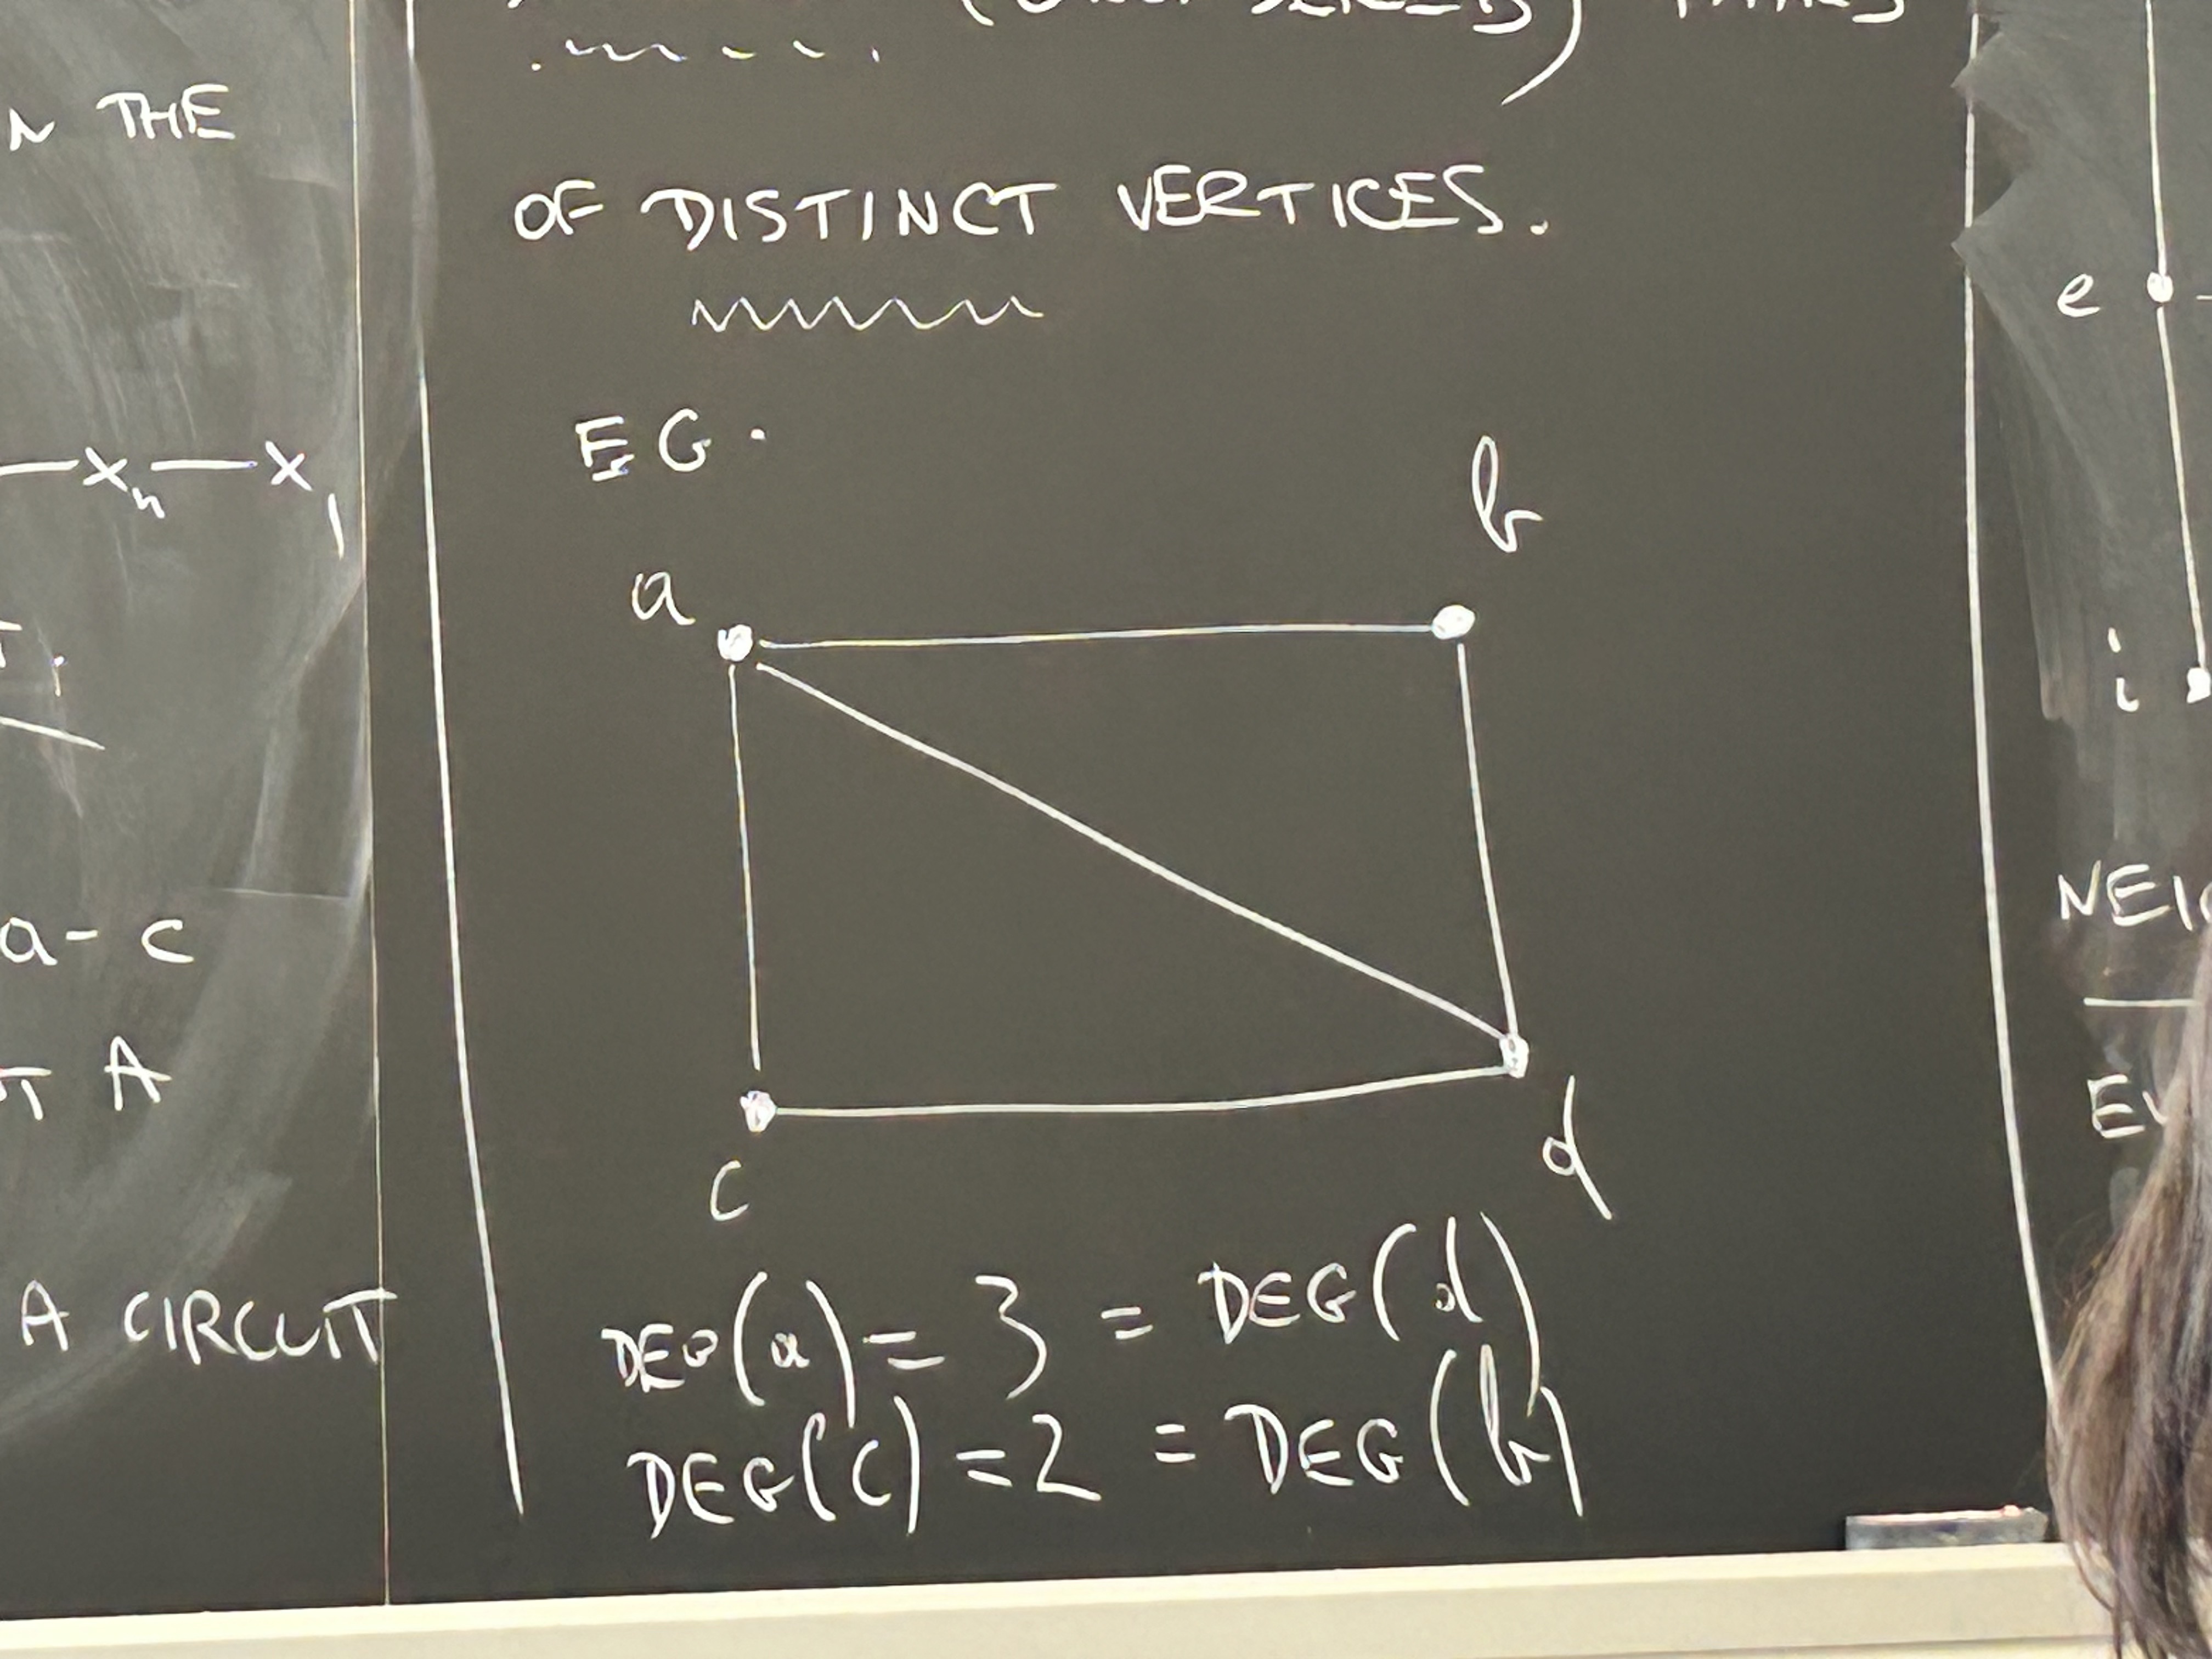 N THE
— x_n — x_1
a - c
A
A CIRCUIT
OF DISTINCT VERTICES.
EG.
a
b
c
d
DEG(a) = 3 = DEG(d)
DEG(c) = 2 = DEG(b)
e
i